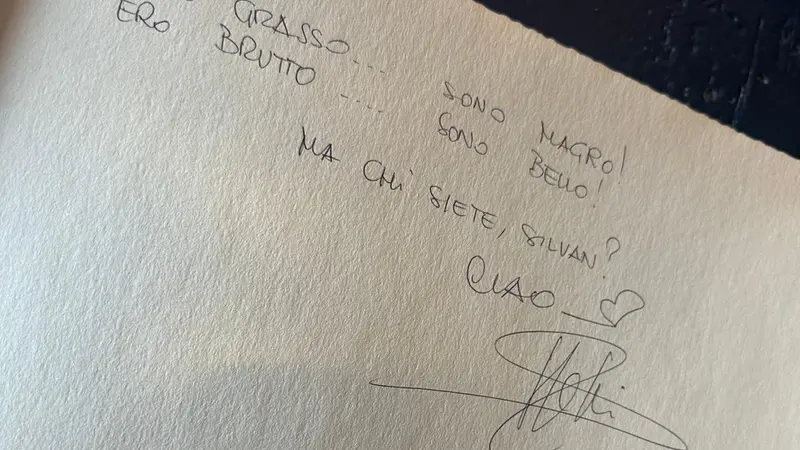 GRASSO... SONO MAGRO!
ERO BRUTTO .... SONO BELLO!
MA CHI SIETE, SILVAN?
CIAO